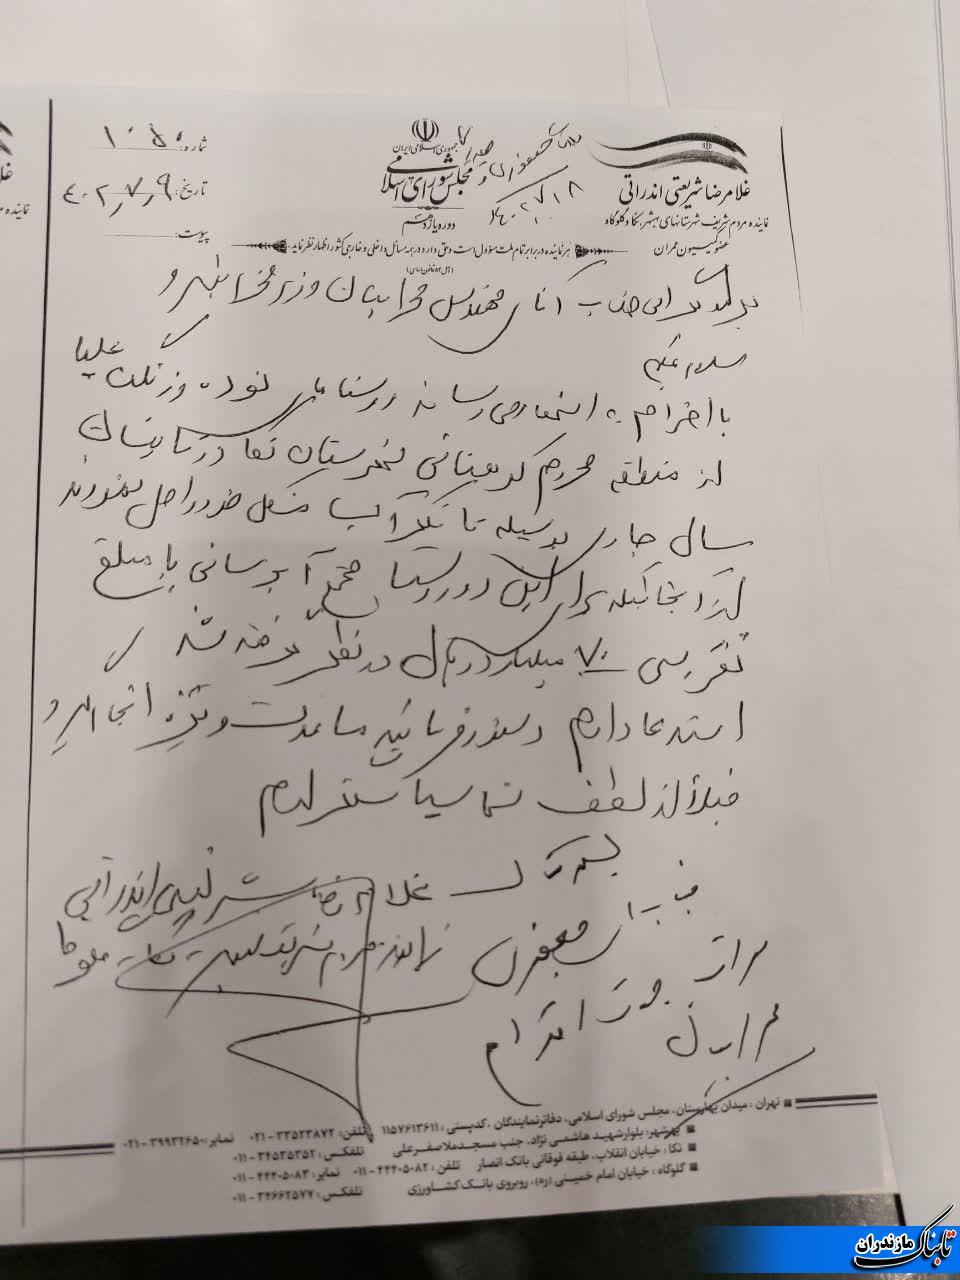 جمهوری اسلامی ایران
مجلس شورای اسلامی
دوره یازدهم
غلامرضا شریعتی اندراتی
نماینده مردم شریف شهرستانهای بهشهر، نکا و گلوگاه
عضو کمیسیون عمران
شماره: ۱۰۵
تاریخ: ۴۰۲,۷,۹
پیوست:
هر نماینده در برابر تمام ملت مسؤول است و حق دارد در همه مسائل داخلی و خارجی کشور اظهار نظر نماید
(اصل ۸۴ قانون اساسی)
۴۰۲/۷/۱۸
برادر گرامی جناب آقای مهندس محرابیان وزیر محترم نیرو
سلام علیکم
با احترام به استحضار می رساند روستاهای نوده و زنگت علیا
از منطقه محروم کوهستانی شهرستان نکا در تابستان
سال جاری بوسیله تانکر آب مشکل خود را حل نمودند
از آنجائیکه برای این دو روستا مجتمع آبرسانی با مبلغ
تقریبی ۷۰ میلیارد ریال در نظر گرفته شد
استدعا دارم دستور فرمائید مساعدت ویژه انجام گیرد
قبلاً از لطف شما سپاسگزارم
غلامرضا شریعتی اندراتی
جناب آقای جعفری
مراتب جهت اقدام
محرابیان
تهران : میدان بهارستان، مجلس شورای اسلامی، دفاتر نمایندگان ، کدپستی : ۱۱۵۷۶۱۳۶۱۱ تلفن: ۳۳۵۲۳۸۷۲ - ۰۲۱ نمابر: ۳۹۹۳۲۶۵۰ - ۰۲۱
بهشهر: بلوار شهید هاشمی نژاد، جنب مسجد ملاصفرعلی تلفکس : ۳۴۵۳۵۳۵۲ - ۰۱۱
نکا : خیابان انقلاب، طبقه فوقانی بانک انصار تلفن : ۴۴۴۰۵۰۸۲ - ۰۱۱ نمابر: ۴۴۴۰۵۰۸۳ - ۰۱۱
گلوگاه : خیابان امام خمینی (ره)، روبروی بانک کشاورزی تلفکس : ۳۴۶۶۲۵۷۷ - ۰۱۱
تابناک مازندران